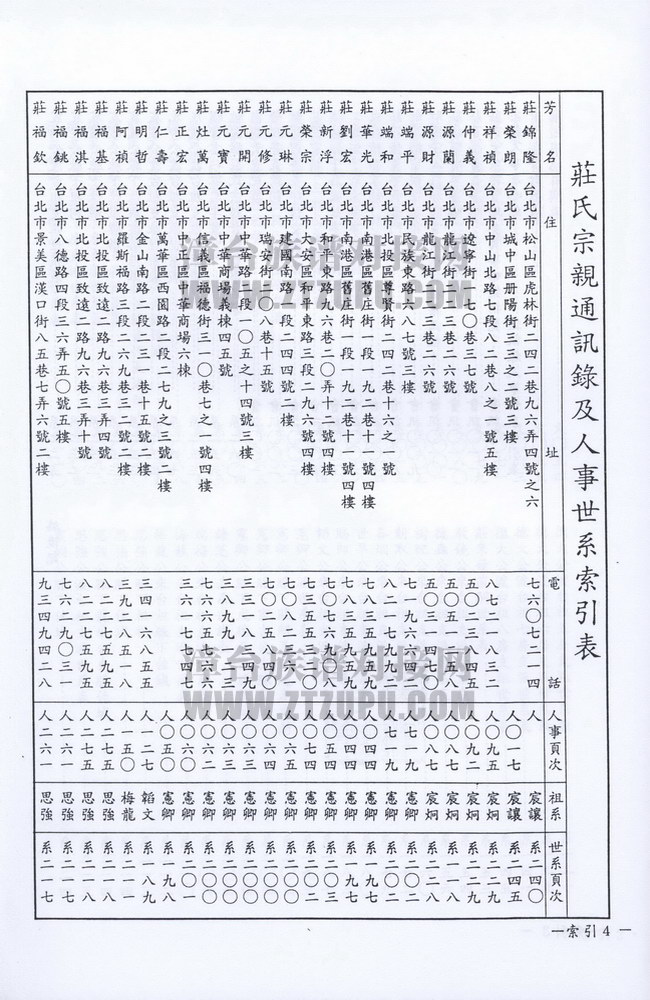 莊氏宗親通訊錄及人事世系索引表
芳名 住址 電話 人事頁次 祖系 世系頁次
莊錦隆 台北市松山區虎林街二四二巷九六弄四號之六 七六〇七二一四 人 宸讓 系二四〇
莊榮朗 台北市城中區册陽街三三之二號三樓 人〇一七 宸讓 系二四五
莊祥禎 台北市中山北路七段八二巷八之一號五樓 八七二一八三二 人〇九五 宸炯 系二二九
莊仲義 台北市遼寧街一七〇巷三七號 五〇二三八四五 人〇九二 宸炯 系二二九
莊源蘭 台北市龍江街二三巷二六號 宸炯 系二一八
莊源財 台北市龍江街二三巷二六號 五〇三一四七〇 人〇八七 宸炯 系二二八
莊端平 台北市民族東路六八七號三樓 人七一九 憲卿 系二〇二
莊端和 台北市北投區尊賢街二四二巷十六之一號 人七一九 憲卿 系二〇二
莊華光 台北市南港區舊庄街一段一九二巷十一號四樓 人〇四四 憲卿 系一九七
莊劉宏 台北市南港區舊庄街一段一九二巷十一號四樓 人〇四四 憲卿 系一九七
莊新浮 台北市和平東路九六巷二〇弄十二號四樓 人〇七四 憲卿 系二〇三
莊榮宗 台北市大安區和平東路三段二九六號四樓 人〇七四 憲卿 系二〇二
莊元琳 台北市建國南路一段二四四號二樓 人〇六五 憲卿 系二〇〇
莊元修 台北市瑞安街一〇八巷十五號 人〇六四 憲卿 系二〇〇
莊元開 台北市中華路一段一〇五之十四號三樓 人〇六三 憲卿 系二〇〇
莊元寶 台北市中華商場義棟四五號 人〇六三 憲卿 系二〇〇
莊灶萬 台北市信義區福德街三一〇巷七之一號四樓 人〇六二 憲卿 系二〇〇
莊正宏 台北市中正區中華商場六棟 三六一一七四七 人〇六〇 憲卿 系二〇一
莊仁壽 台北市萬華區西園路二段二七九之三號七樓 人〇五〇 憲卿 系一九八
莊明哲 台北市金山南路二段二三一巷十五號二樓 三四一六八五五 人一二七 韜文 系一八九
莊阿禎 台北市羅斯福路三段二六九巷三二號二樓 三九二八五一八 人一五〇 梅龍 系二一一
莊福基 台北市北投區致遠二路九六巷三弄四號 八二二七五九五 人二七五 思強 系二一八
莊福淇 台北市北投區致遠二路九六巷三弄十號 八二二七五九五 人二七五 思強 系二一八
莊福銚 台北市八德路四段三六弄五〇號五樓 七六二九〇三一 人二六一 思強 系二一七
莊福欽 台北市景美區漢口街八五巷七弄六號二樓 九三四九四二八 人二六一 思強 系二一七
漳台族譜对接网
WWW.ZTZUPU.COM
漳台族譜对接网
WWW.ZTZUPU.COM
一索引4一